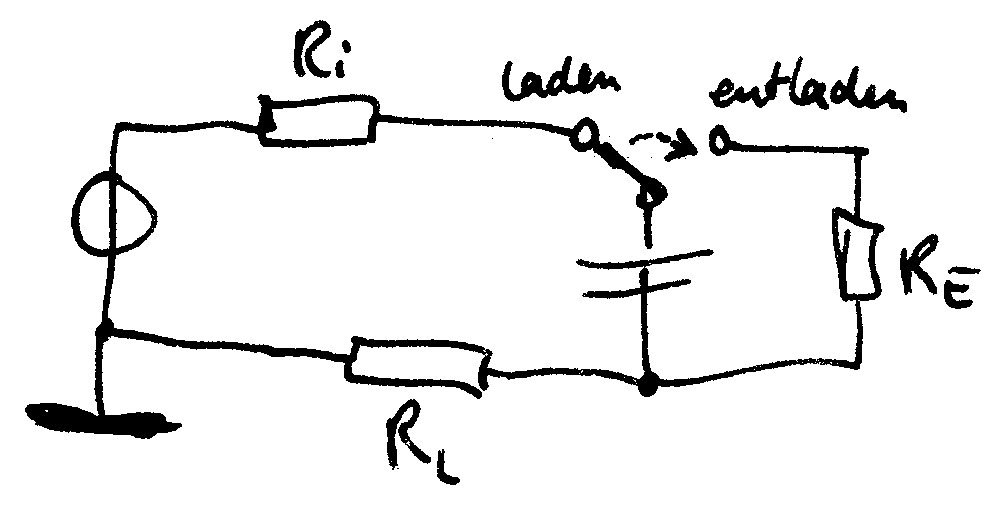 Ri
laden
entladen
RE
RL